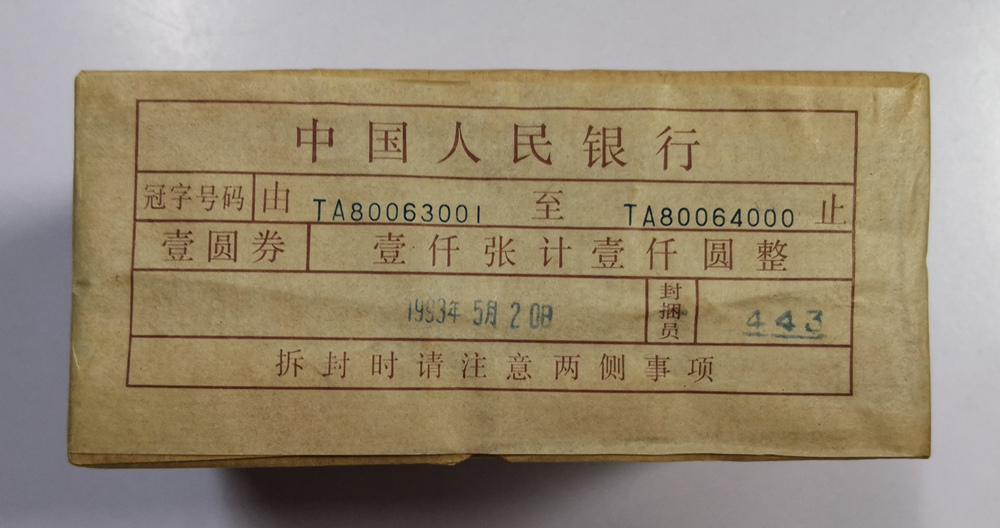 中国人民银行
冠字号码 由 TA80063001 至 TA80064000 止
壹圆券 壹仟张计壹仟圆整
1993年 5月 20日 封捆员 443
拆封时请注意两侧事项